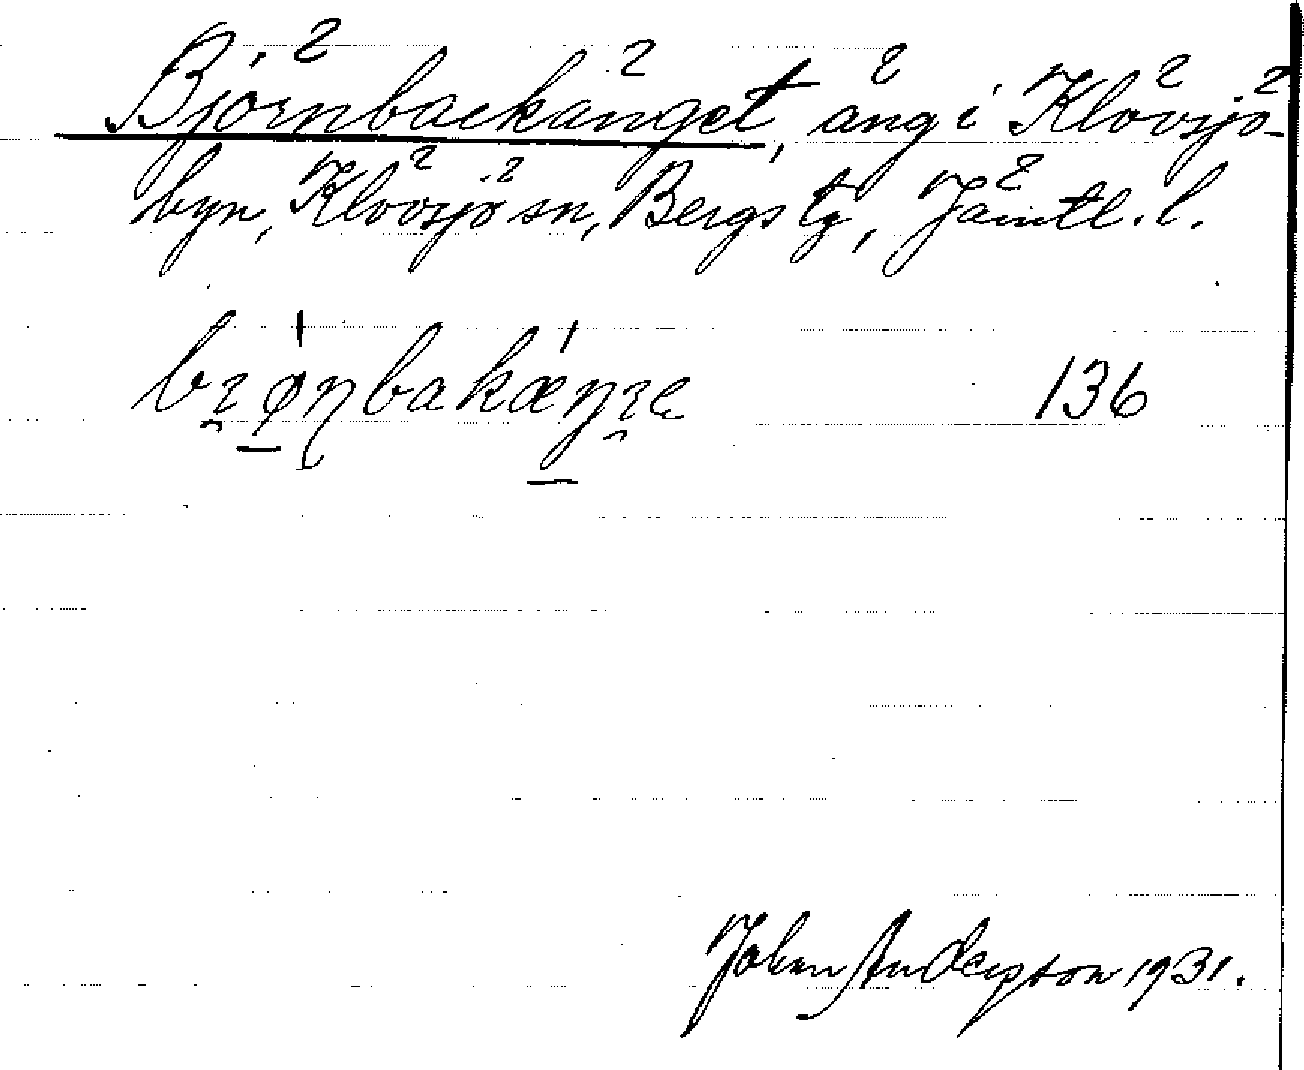 Björnbackänget, äng i Klövsjö-
byn, Klövsjö sn, Bergs tg, Jämtl. l.
136
Johan Anderson 1931.